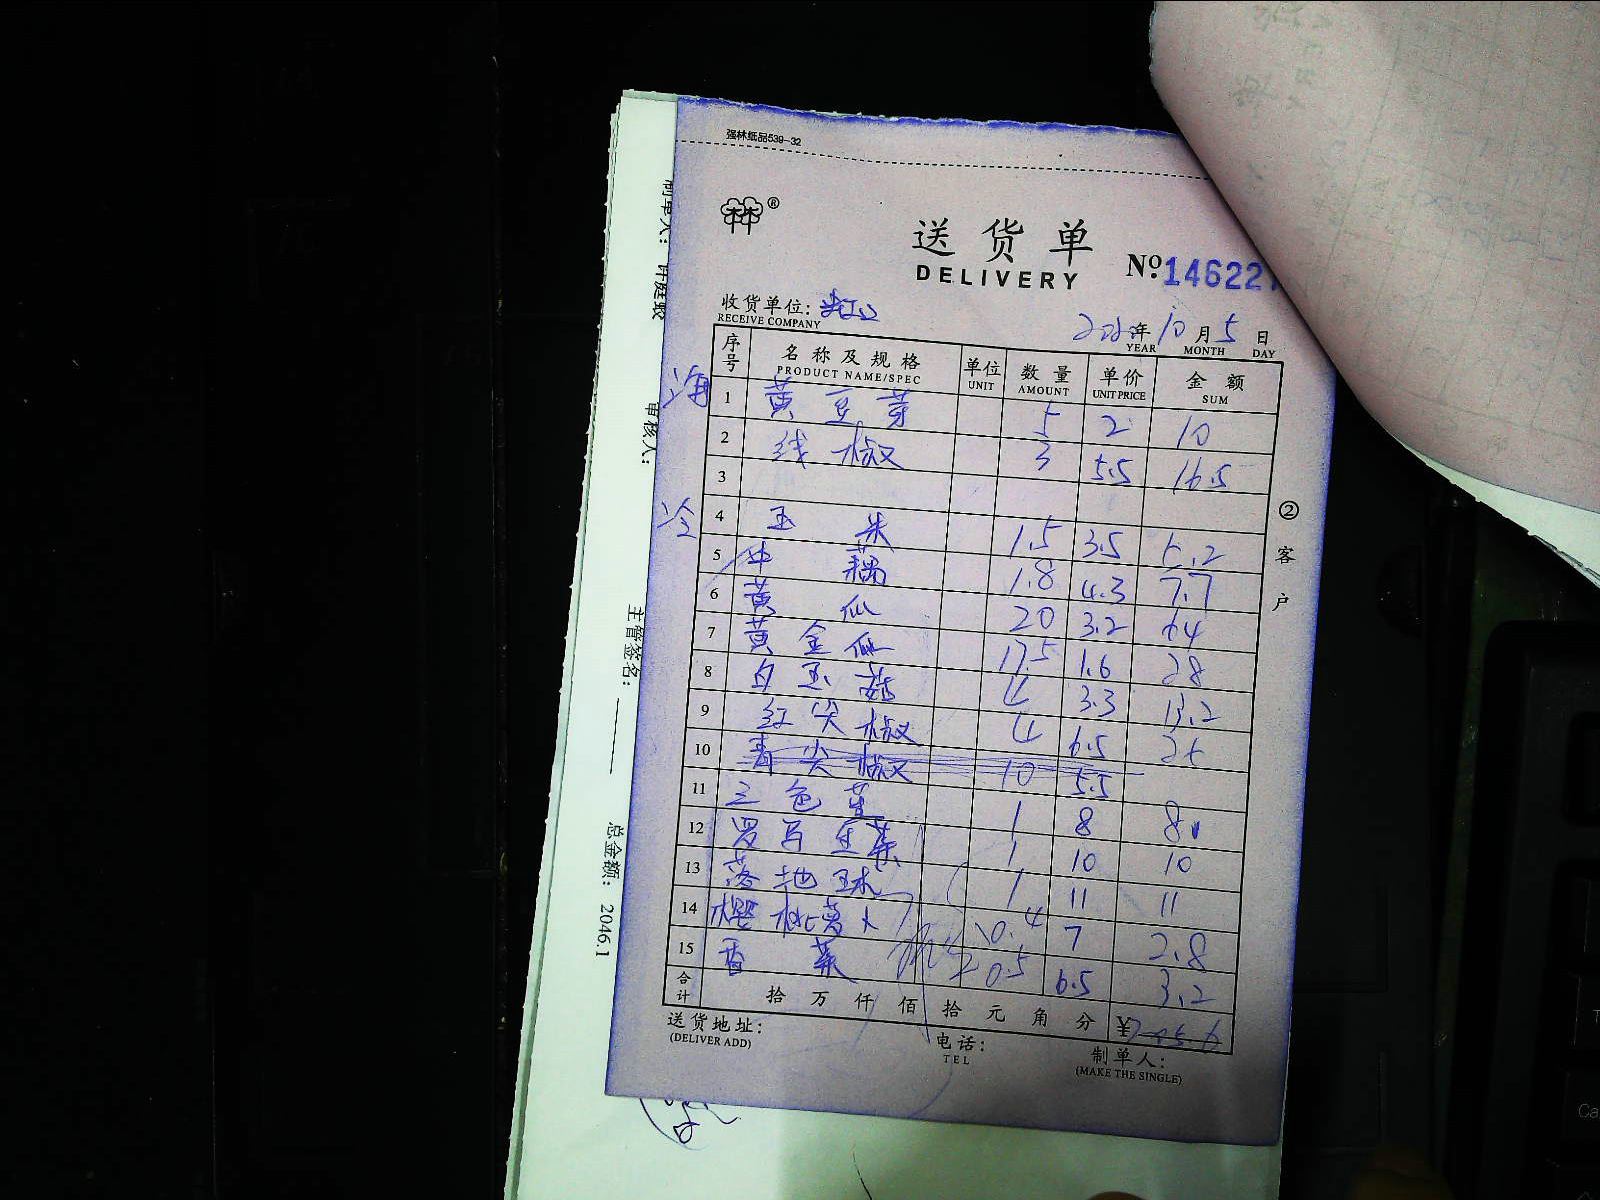 强林纸品539-32
林®
送货单
DELIVERY
Nº 146227
收货单位:
RECEIVE COMPANY
年 10 月 5 日
YEAR MONTH DAY
序号 名称及规格 单位 数量 单价 金额
PRODUCT NAME/SPEC UNIT AMOUNT UNIT PRICE SUM
海 1 黄豆芽 5 2 10
2 线椒 3 5.5 16.5
3
冷 4 玉米 1.5 3.5 5.2
5 中藕 1.8 4.3 7.7
6 黄瓜 20 3.2 64
7 黄金瓜 17.5 1.6 28
8 白玉菇 4 3.3 13.2
9 红尖椒 4 6.5 26
10 青尖椒 10 5.5
11 三色堇 1 8 8
12 罗马生菜 1 10 10
13 落地球 1 11 11
14 樱桃萝卜 0.4 7 2.8
15 香菜 0.5 6.5 3.2
合计 拾万仟佰拾元角分 ¥
送货地址:
(DELIVER ADD)
电话:
TEL
制单人:
(MAKE THE SINGLE)
②客户
制单人: 许庭蛟
审核人:
主管签名:
总金额: 2046.1